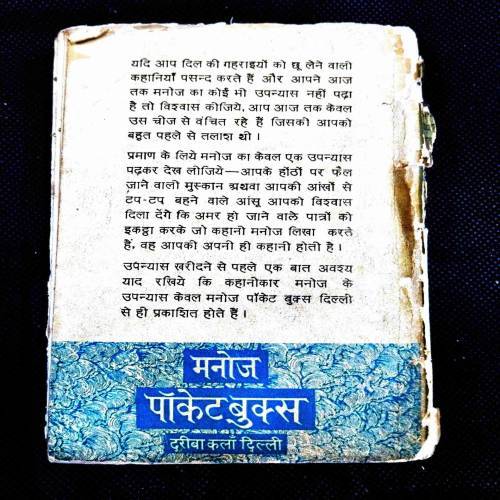 यदि आप दिल की गहराइयों को छू लेने वाली
कहानियाँ पसन्द करते हैं और आपने आज
तक मनोज का कोई भी उपन्यास नहीं पढ़ा
है तो विश्वास कीजिये, आप आज तक केवल
उस चीज से वंचित रहे हैं जिसकी आपको
बहुत पहले से तलाश थी ।
प्रमाण के लिये मनोज का केवल एक उपन्यास
पढ़कर देख लीजिये—आपके होंठों पर फैल
जाने वाली मुस्कान अथवा आपकी आंखों से
टप-टप बहने वाले आंसू आपको विश्वास
दिला देंगे कि अमर हो जाने वाले पात्रों को
इकट्ठा करके जो कहानी मनोज लिखा करते
हैं, वह आपकी अपनी ही कहानी होती है ।
उपन्यास खरीदने से पहले एक बात अवश्य
याद रखिये कि कहानीकार मनोज के
उपन्यास केवल मनोज पॉकेट बुक्स दिल्ली
से ही प्रकाशित होते हैं ।
मनोज
पॉकेट बुक्स
दरीबा कलाँ दिल्ली